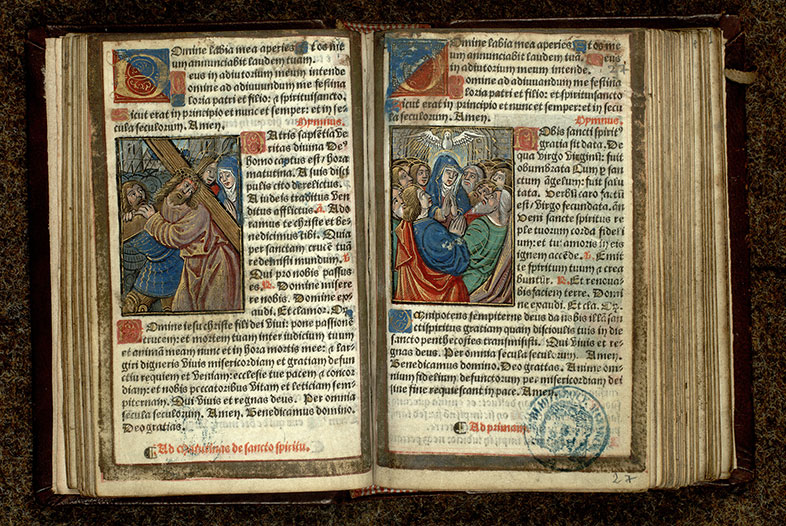 Domine labia mea aperies. Et os me
um annunciabit laudem tuam.
Deus in adiutorium meum intende
Domine ad adiuuandum me festina
Gloria patri et filio: & spiritui sancto.
Sicut erat in principio et nunc et semper: et in se-
cula seculorum. Amen. Hymnus.
Patris sapiẽtia ve
ritas diuina De9
homo captus est hora
matutina. A suis disci
pulis cito derelictus.
A iudeis traditus ven
ditus afflictus. a. Ado
ramus te christe et be
nedicimus tibi. Quia
per sanctam crucẽ tuã
redemisti mundum. v.
Qui pro nobis passus
es. R. Domine misere
re nobis. Domine ex
audi. Et clamor. Or.
Domine iesu christe fili dei viui: pone passionẽ
crucem: et mortem tuam inter iudicium tuum
et animã meam nunc et in hora mortis mee: & lar
giri digneris viuis misericordiam et gratiam defun
ctis requiem et veniam: ecclesie tue pacem & concor
diam: et nobis peccatoribus vitam et leticiam sem
piternam. Qui viuis et regnas deus. Per omnia
secula seculorum. Amen. Benedicamus domino.
Deo gratias.
Ad matutinas de sancto spiritu.
Domine labia mea aperies Et os me
um annunciabit laudem tuã. Deus
in adiutorium meum intende.
Domine ad adiuuandum me festina
Gloria patri et filio: & spiritui sancto.
Sicut erat in principio et nunc et semper: et in secu
la seculorum. Amen. Hymnus.
Nobis sancti spirit9
gratia sit data. De
qua virgo virginũ: fuit
obumbrata Cum p san
ctum ãgelum: fuit salu
tata. Verbũ caro factũ
est: virgo fecundata. añ
Veni sancte spiritus re
ple tuorum corda fideli
um: et tui amoris in eis
ignem accẽde. v. Emit
te spiritum tuum & crea
buntur. R. Et renoua-
bis faciem terre. Domi
ne exaudi. Et cla. Or.
Omnipotens sempiterne deus da nobis illã san
cti spiritus gratiam quam discipulis tuis in die
sancto penthecostes transmisisti. Qui viuis et re-
gnas deus. Per omnia secula seculorum. Amen.
Benedicamus domino. Deo gratias. Anime om-
nium fidelium defunctorum per misericordiam dei
sine fine requiescant in pace. Amen.
Ad primam.
27